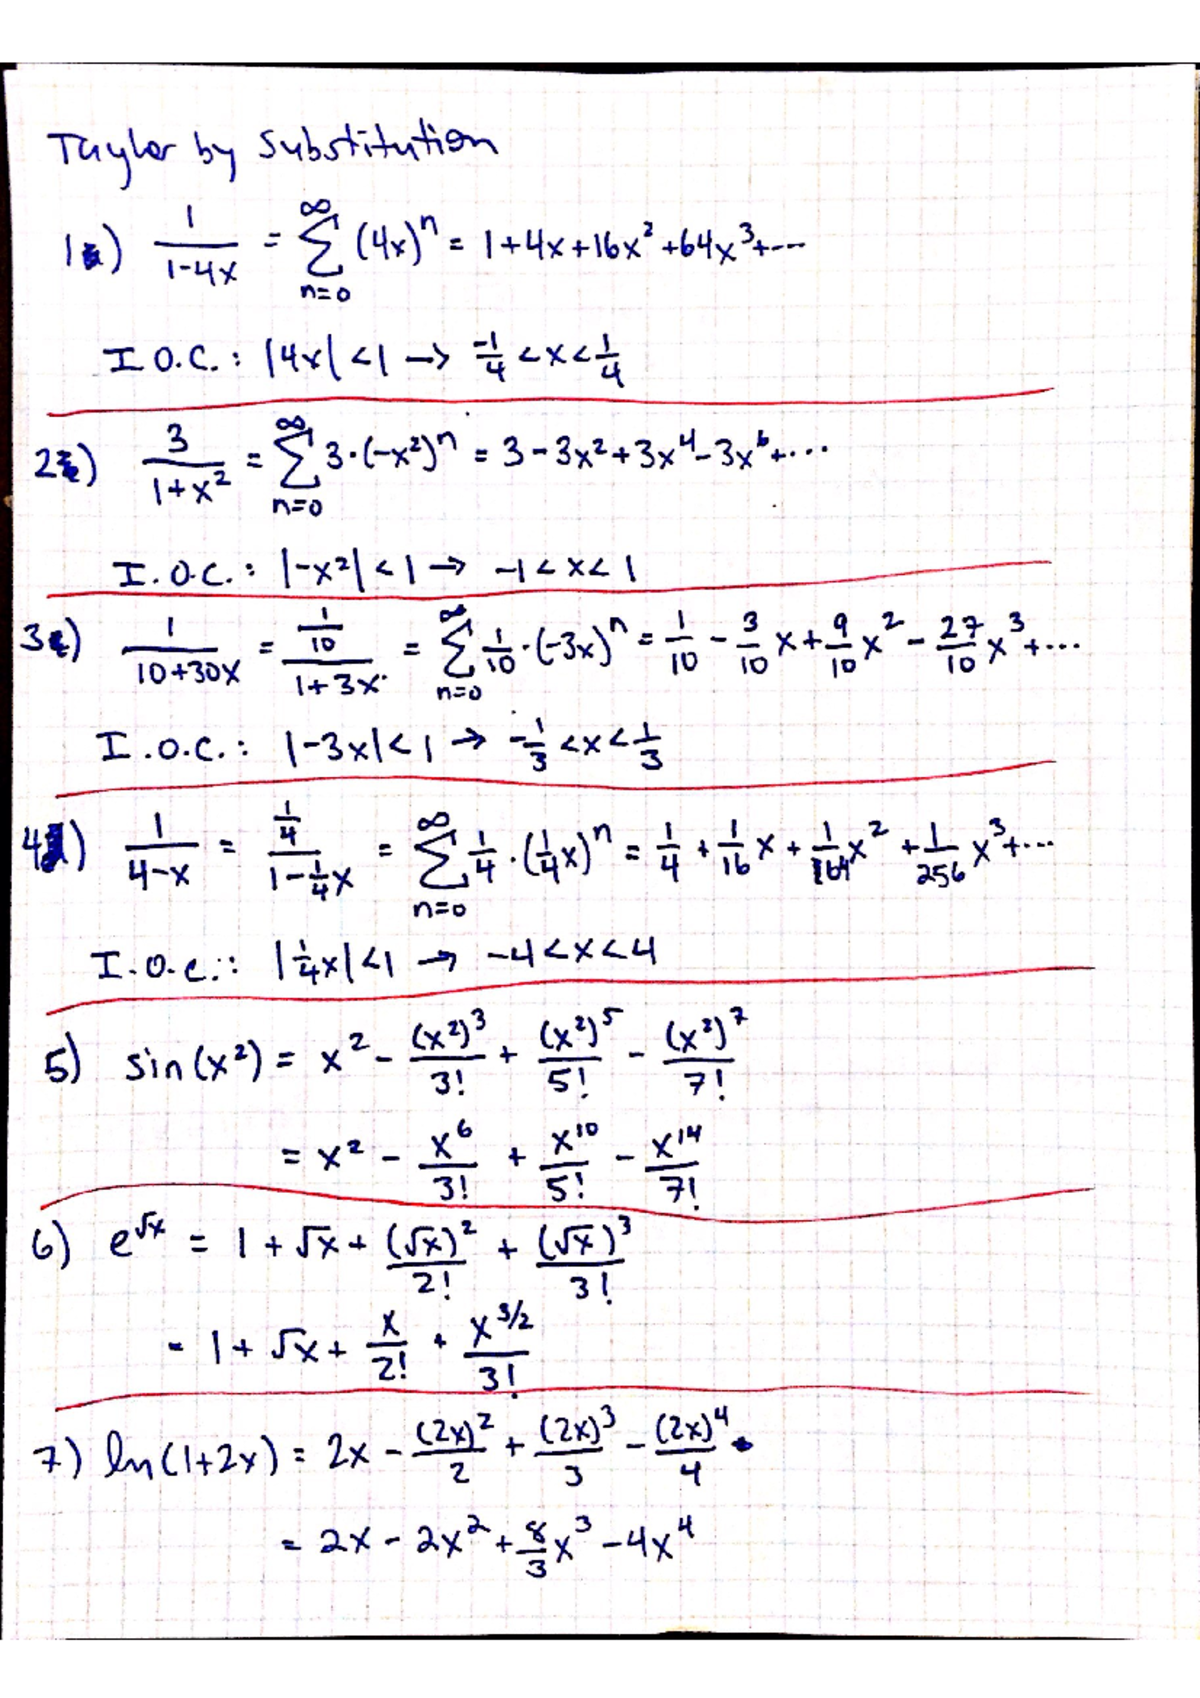 Taylor by Substitution
1) 1/(1-4x) = ∑_{n=0}^{∞} (4x)^n = 1+4x+16x²+64x³+---
I.O.C.: |4x|<1 → -1/4 <x< 1/4
2) 3/(1+x²) = ∑_{n=0}^{∞} 3·(-x²)^n = 3-3x²+3x⁴-3x⁶+···
I.O.C.: |-x²|<1 → -1<x<1
3) 1/(10+30x) = (1/10)/(1+3x) = ∑_{n=0}^{∞} 1/10·(-3x)^n = 1/10 - 3/10 x + 9/10 x² - 27/10 x³+···
I.O.C.: |-3x|<1 → -1/3 <x< 1/3
4) 1/(4-x) = (1/4)/(1-1/4x) = ∑_{n=0}^{∞} 1/4·(1/4x)^n = 1/4 + 1/16 x + 1/64 x² + 1/256 x³+···
I.O.C.: |1/4x|<1 → -4<x<4
5) sin(x²) = x² - (x²)³/3! + (x²)⁵/5! - (x²)⁷/7!
= x² - x⁶/3! + x¹⁰/5! - x¹⁴/7!
6) e^√x = 1+√x+ (√x)²/2! + (√x)³/3!
= 1+√x+ x/2! + x^{3/2}/3!
7) ln(1+2x) = 2x - (2x)²/2 + (2x)³/3 - (2x)⁴/4
= 2x - 2x² + 8/3 x³ - 4x⁴